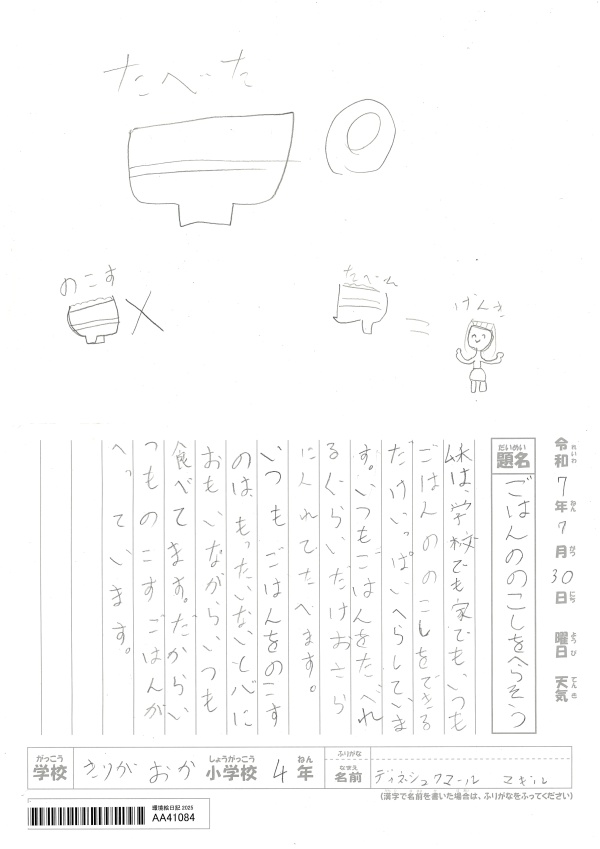 たべた
のこす
たべる
げんき
令和7年7月30日 曜日 天気
れいわ ねん がつ にち ようび てんき
だいめい
題名 ごはんののこしをへらそう
妹は、学校でも家でもいつも
ごはんののこしをできる
だけいっぱいへらしていま
す。いつもごはんをたべれ
るぐらいだけおさら
にいれてたべます。
いつもごはんをのこす
のはもったいないと心に
おもいながらいつも
食べてます。だからい
つものこすごはんが
へっています。
がっこう しょうがっこう ねん
学校 きりが おか 小学校 4年
ふりがな
なまえ
名前 ディネシュクマール マギル
(漢字で名前を書いた場合は、ふりがなをふってください)
環境絵日記 2025
AA41084